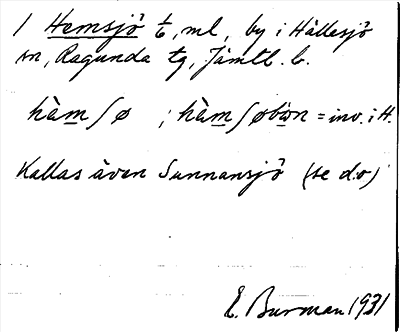 1 Hemsjö 1/6, ml, by i Hällesjö
sn, Ragunda tg, Jämtl. l.
hàm∫ø ; hàm∫øbøn = inv. i H.
Kallas även Sunnansjö (se d.o)
E. Burman 1931